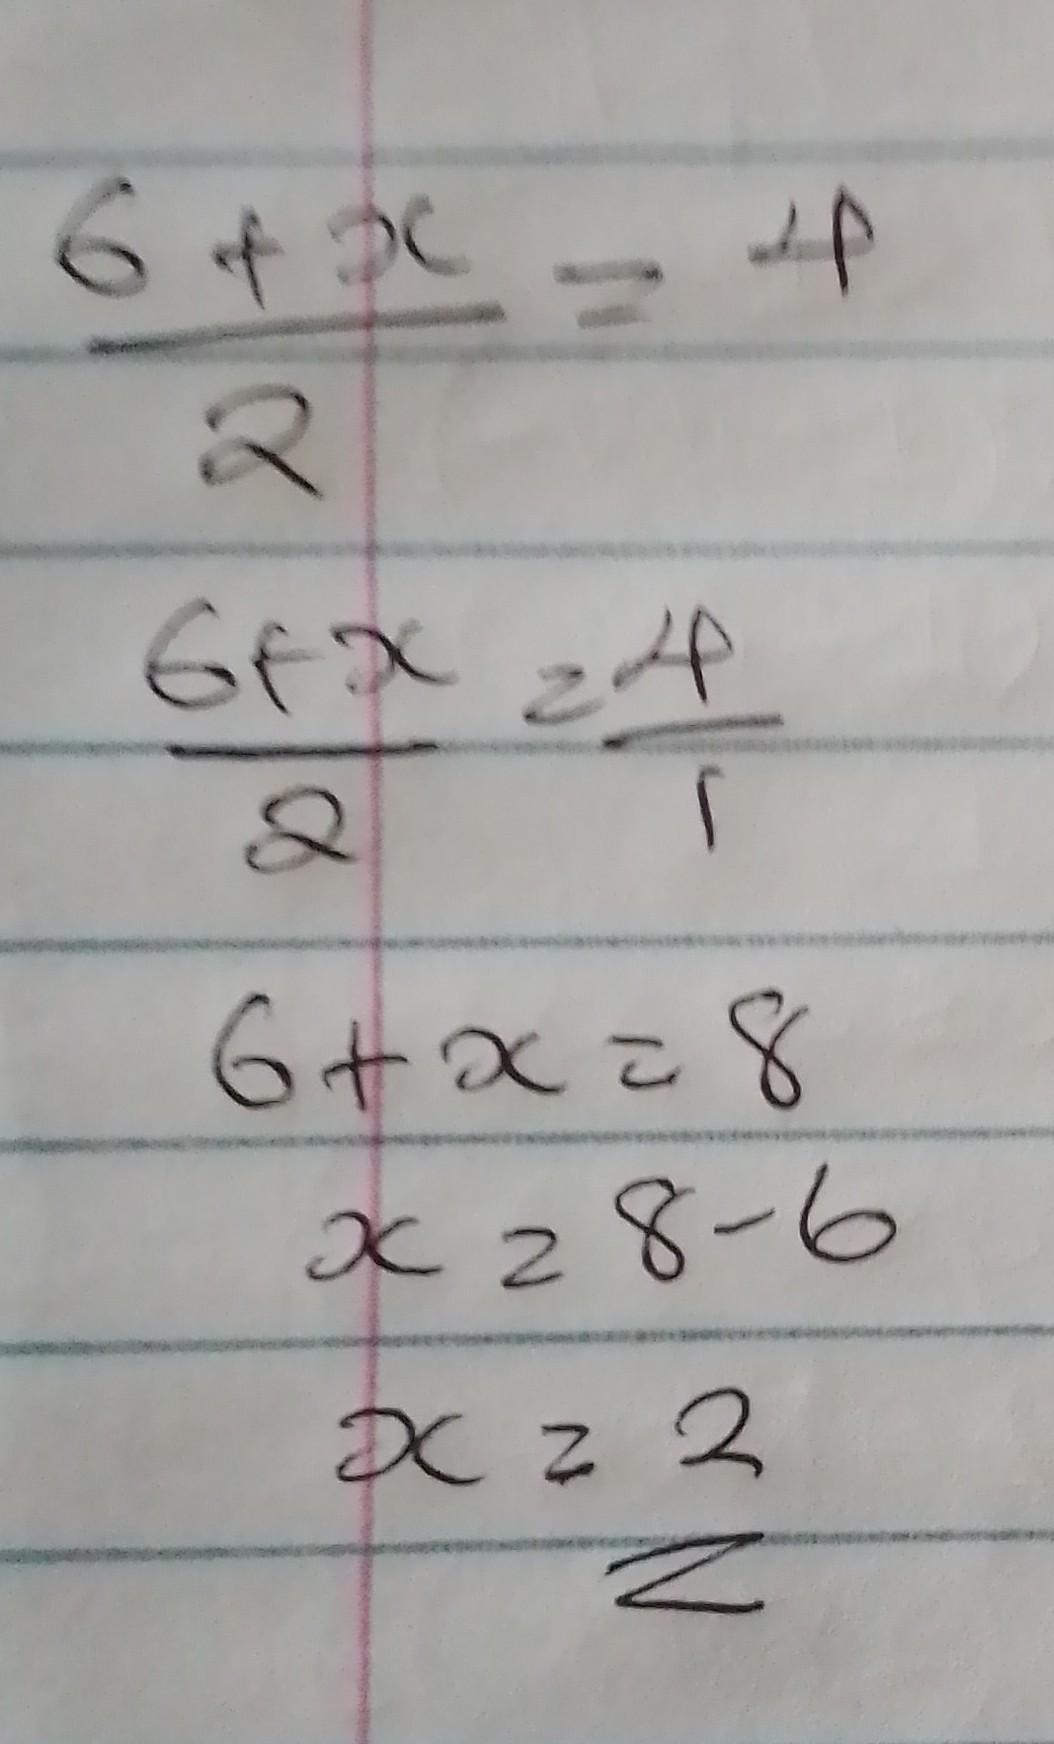 6 + x = 4
2
6+x = 4
2 1
6 + x = 8
x = 8 - 6
x = 2